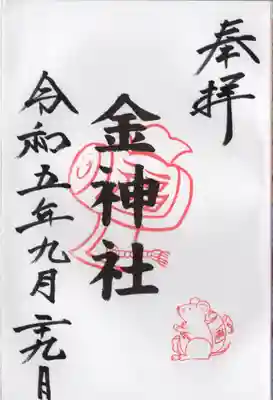 奉拝
金神社
令和五年九月二十九日